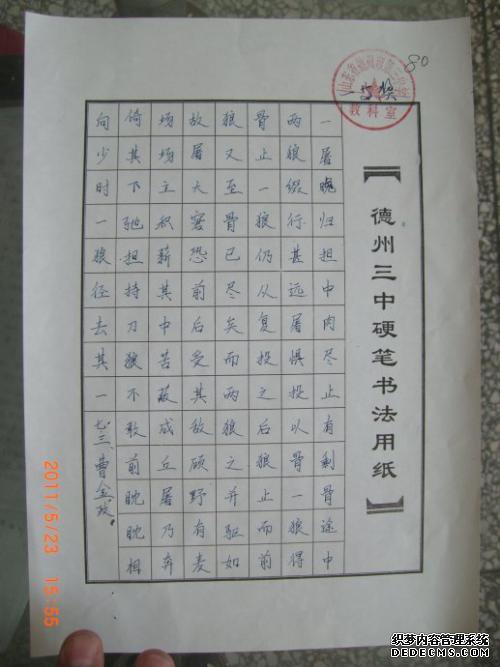 【德州三中硬笔书法用纸】
80
教科室
一屠晚归担中肉尽止有剩骨途中
两狼缀行甚远屠惧投以骨一狼得
骨止一狼仍从复投之后狼止而前
狼又至骨已尽矣而两狼之并驱如
故屠大窘恐前后受其敌顾野有麦
场场主积薪其中苫蔽成丘屠乃奔
倚其下弛担持刀狼不敢前眈眈相
向少时一狼径去其一
七三曹金政
2011/5/23 15:55
织梦内容管理系统
DEDECMS.COM